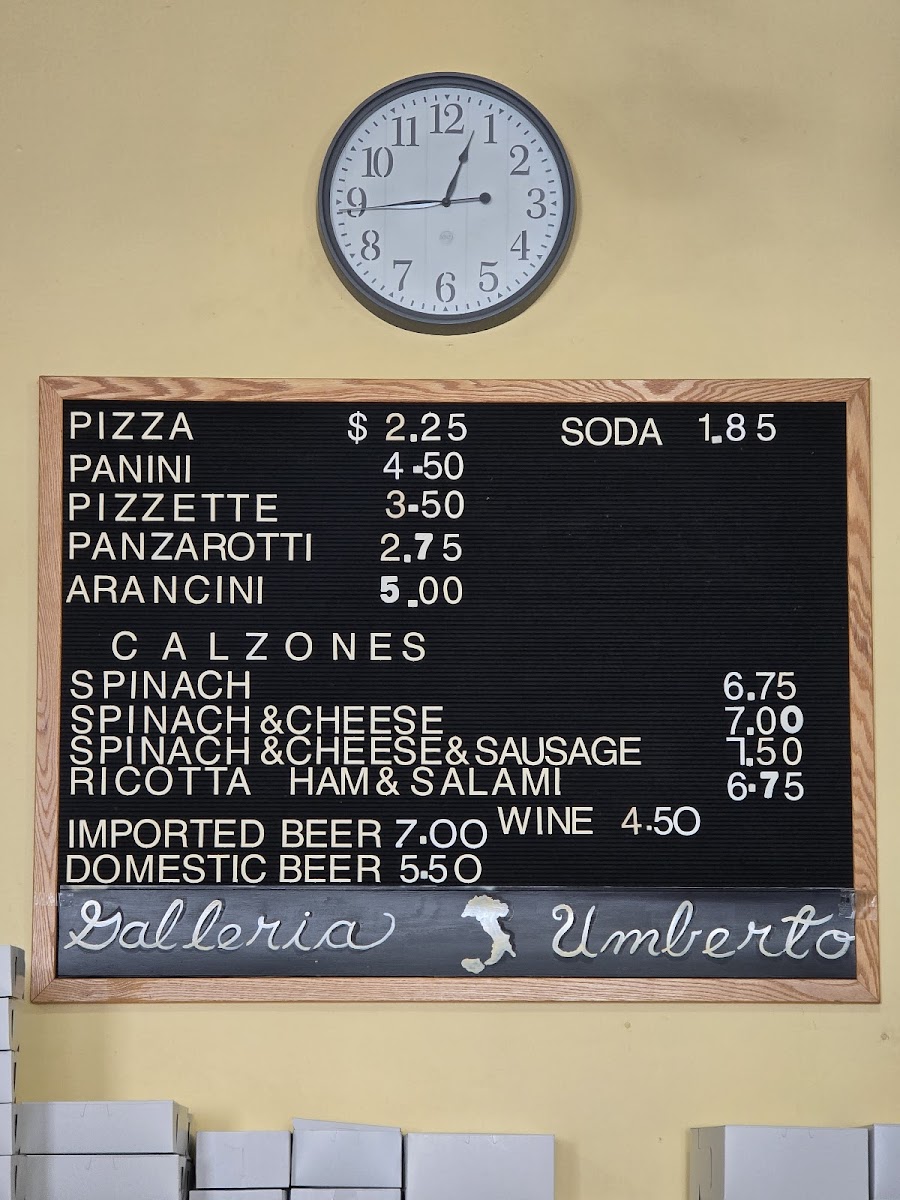 12
1
2
3
4
5
6
7
8
9
10
11
PIZZA $ 2.25 SODA 1.85
PANINI 4.50
PIZZETTE 3-50
PANZAROTTI 2.75
ARANCINI 5.00
CALZONES
SPINACH 6.75
SPINACH &CHEESE 7.00
SPINACH &CHEESE&SAUSAGE 7.50
RICOTTA HAM& SALAMI 6.75
IMPORTED BEER 7.00 WINE 4.50
DOMESTIC BEER 5.50
Galleria Umberto